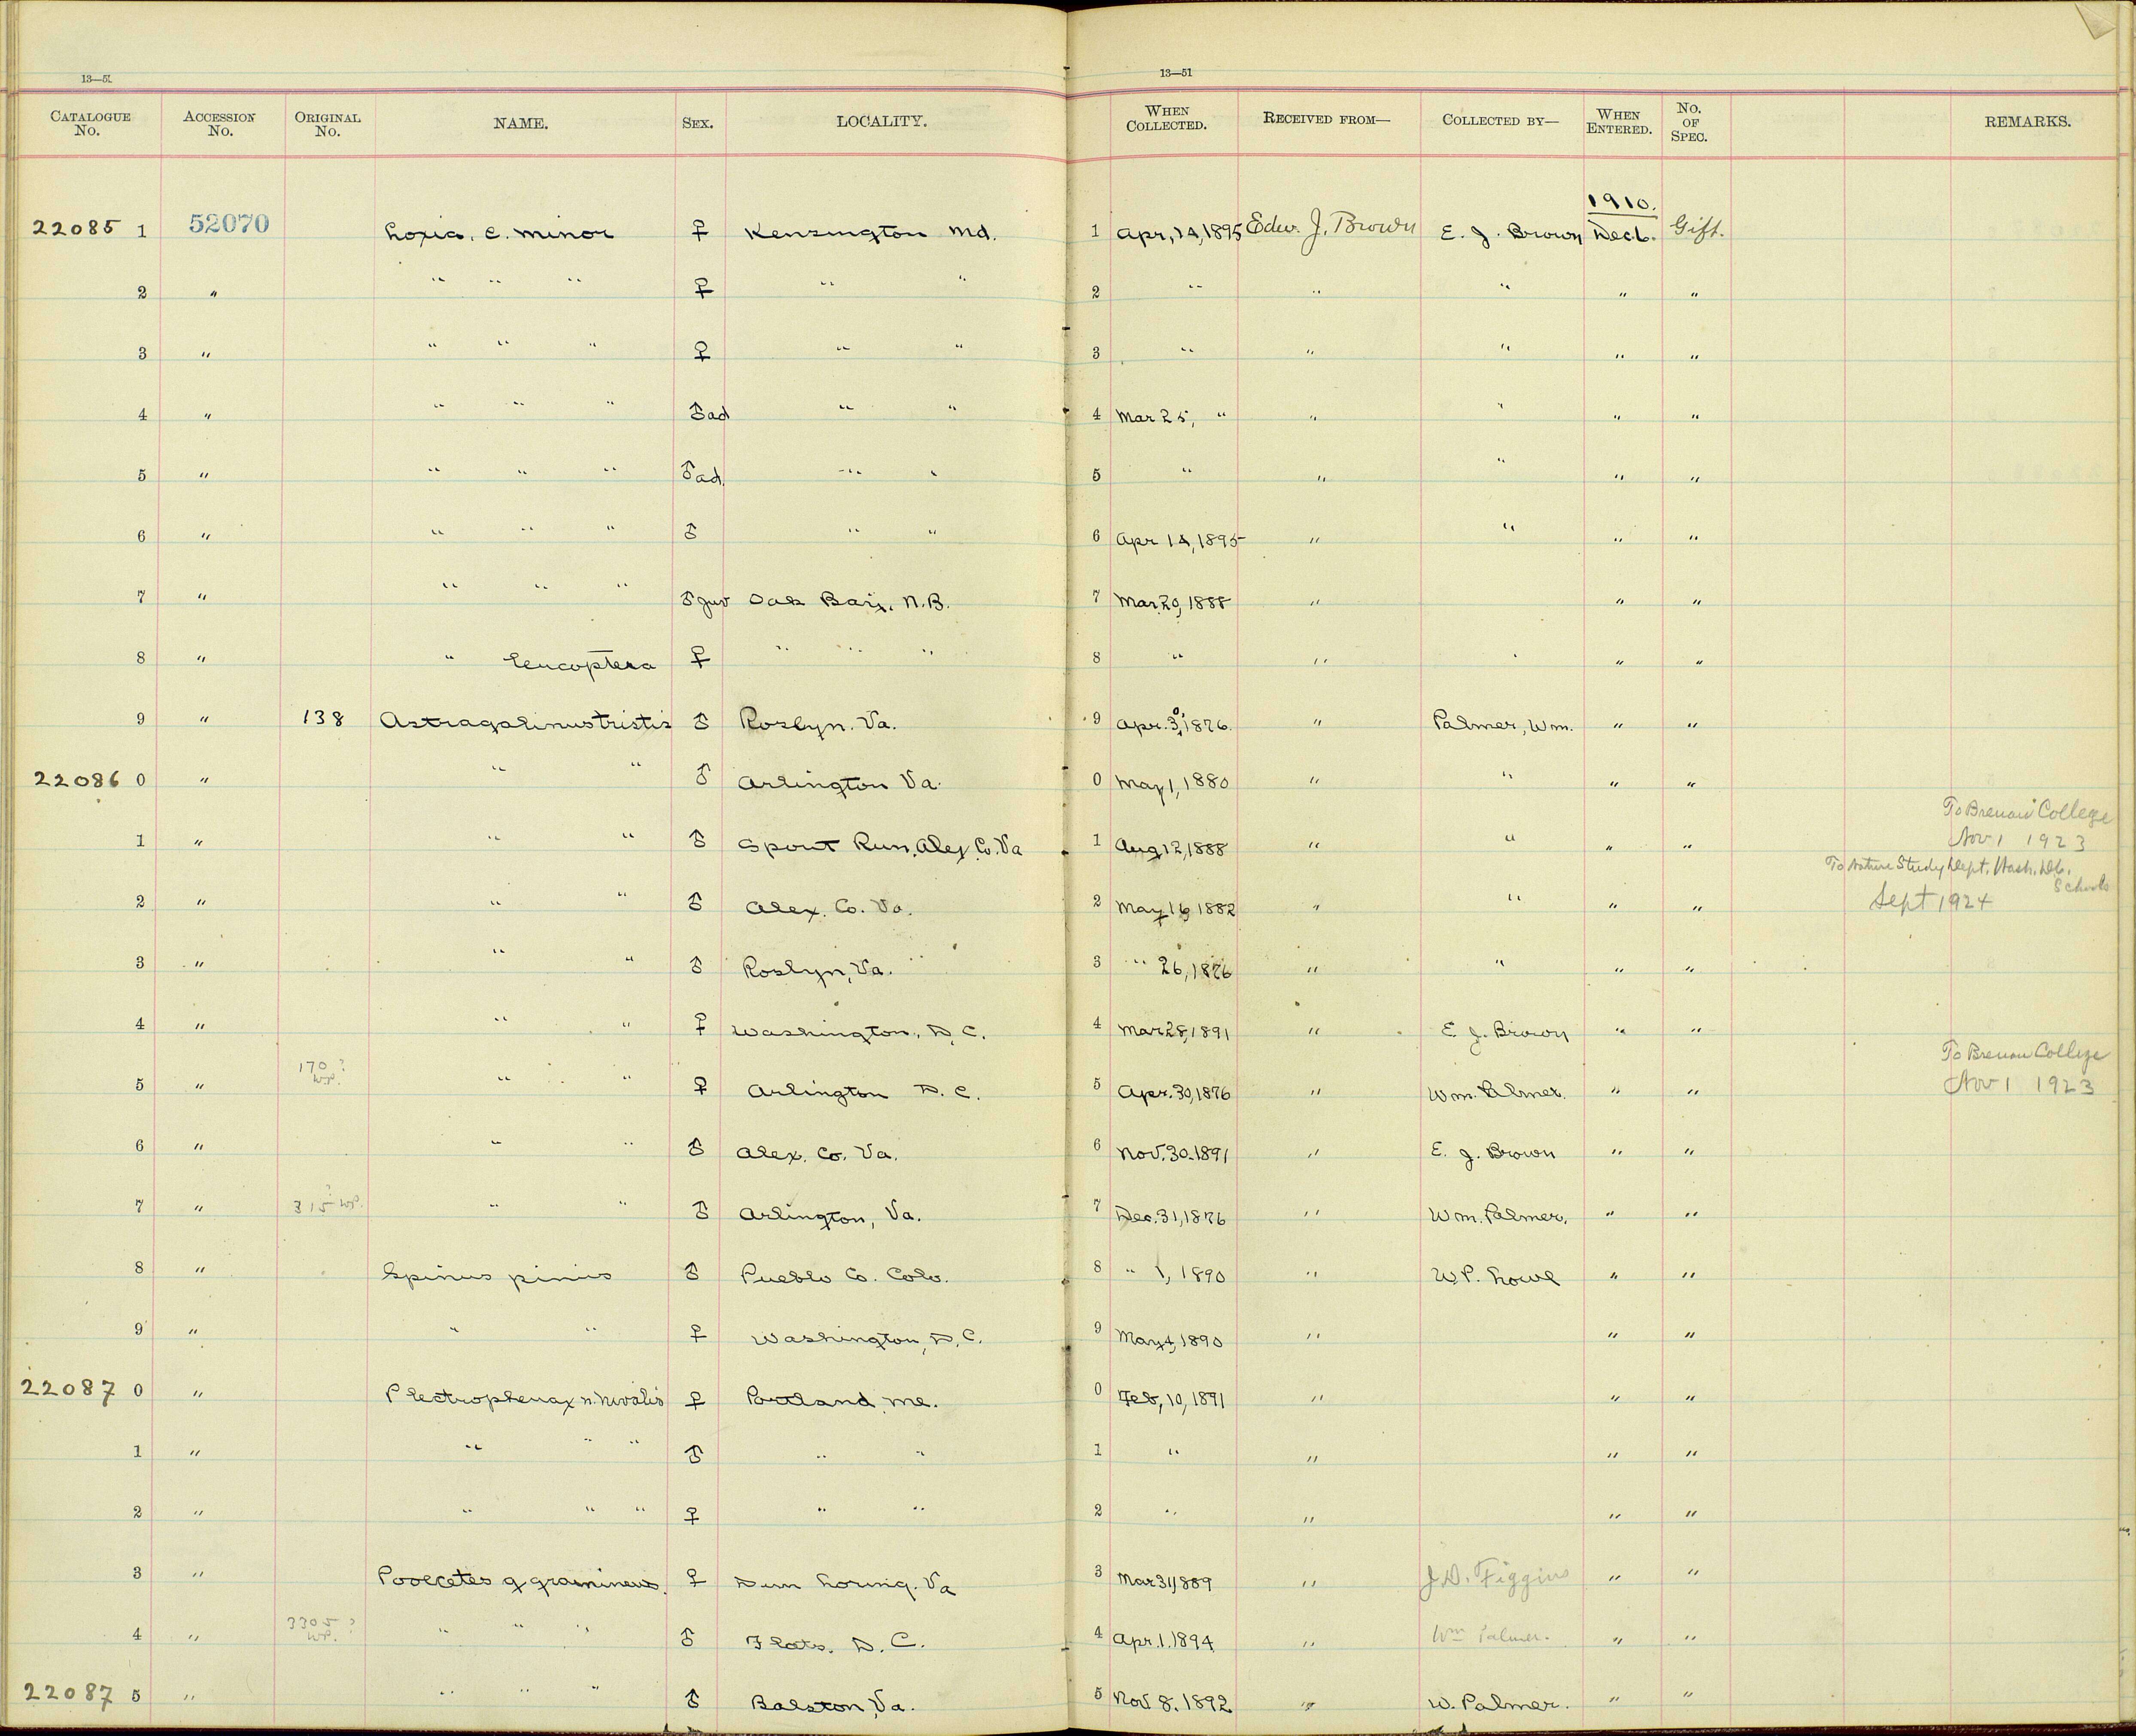 13—51
13—51
CATALOGUE No. ACCESSION No. ORIGINAL No. NAME. SEX. LOCALITY. WHEN COLLECTED. RECEIVED FROM— COLLECTED BY— WHEN ENTERED. No. OF SPEC. REMARKS.
1910.
22085 1 52070 Loxia. c. minor ♀ Kensington Md. 1 Apr, 14, 1895 Edw. J. Brown E. J. Brown Dec 6. Gift.
2 " " " " ♀ " " 2 " " " " "
3 " " " " ♀ " " 3 " " " " "
4 " " " " ♂ad " " 4 Mar 25, " " " " "
5 " " " " ♂ad. " " 5 " " " " "
6 " " " " ♂ " " 6 Apr 14, 1895 " " " "
7 " " " " ♂Juv Oak Bay, N.B. 7 Mar 20, 1888 " " "
8 " " leucoptera ♀ " " " 8 " " " "
9 " 138 Astragalinus tristis ♂ Roslyn. Va. 9 Apr. 30, 1876. " Palmer, Wm. " "
22086 0 " " " ♂ Arlington Va. 0 May 1, 1880 " " " "
1 " " " ♂ Spout Run, Alex. Co. Va 1 Aug 12, 1888 " " " " To Brenau College Nov 1 1923
2 " " " ♂ Alex. Co. Va. 2 May 16, 1882 " " " " To Nature Study Dept. Wash. D.C. Schools Sept 1924
3 " " " ♂ Roslyn, Va. 3 " 26, 1876 " " " "
4 " " " ♀ Washington, D.C. 4 Mar 28, 1891 " E. J. Brown " "
5 " 170 ? W.P. " " ♀ Arlington D.C. 5 Apr. 30, 1876 " Wm. Palmer. " " To Brenau College Nov 1 1923
6 " " " ♂ Alex. Co. Va. 6 Nov. 30. 1891 " E. J. Brown " "
7 " 315 ? W.P. " " ♂ Arlington, Va. 7 Dec. 31, 1876 " Wm. Palmer, " "
8 " Spinus pinus ♂ Pueblo Co. Colo. 8 " 1, 1890 " W.P. Lowe " "
9 " " " ♀ Washington, D.C. 9 May 4, 1890 " " "
22087 0 " Plectrophenax n. nivalis ♀ Portland, Me. 0 Feb, 10, 1891 " " "
1 " " " " ♂ " " 1 " " " "
2 " " " " ♀ " " 2 " " " "
3 " Pooecetes g gramineus. ♀ Dun Loring. Va 3 Mar 31, 1889 " J.D. Figgins " "
4 " 3305 ? W.P. " " " ♂ Flats. D.C. 4 Apr. 1. 1894 " Wm Palmer. " "
22087 5 " " " " ♂ Balston, Va. 5 Nov 8. 1892 " W. Palmer. " "